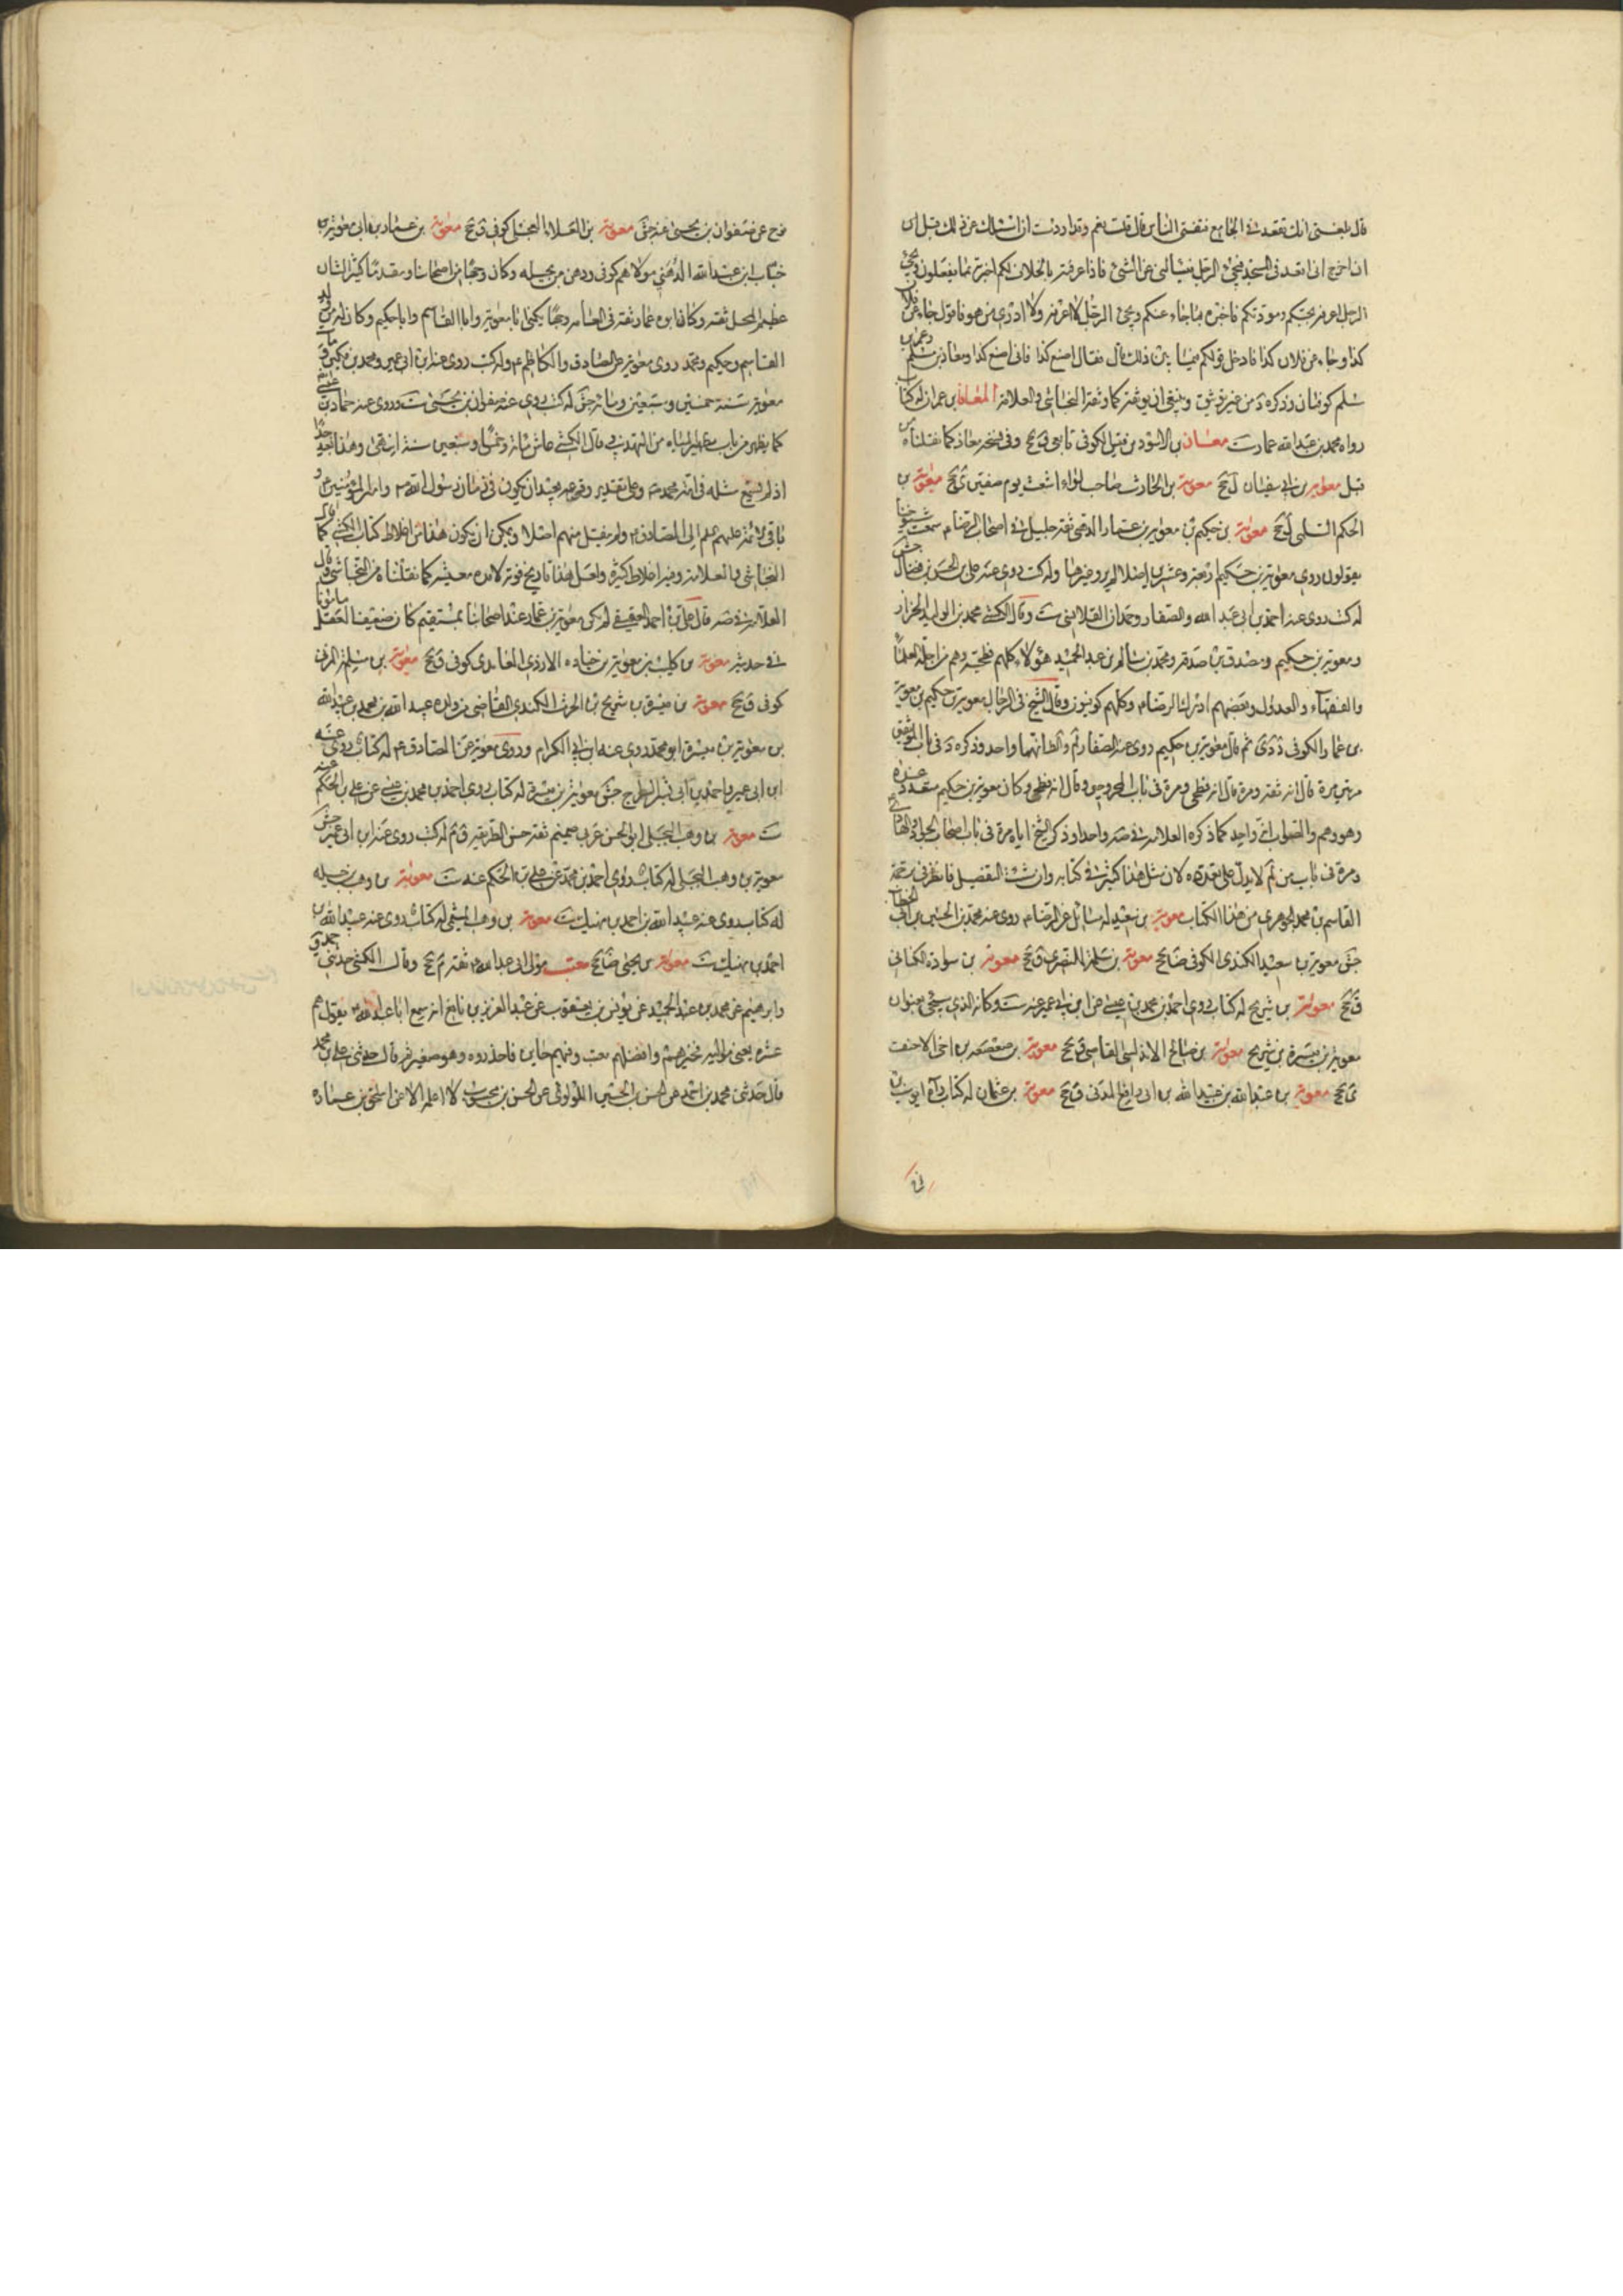 قال بلغني انك تقعد في الجامع فتفتي الناس قال قلت نعم وقد اردت ان اسئلك عن ذلك قبل ان
اخرج اني اقعد في المسجد فيجئ الرجل فيسألني عن الشئ فاذا عرفته بالخلاف لكم اخبرته بما يفعلون ويجئ
الرجل اعرفه بحبكم ومودتكم فاخبره بما جاء عنكم ويجئ الرجل لا اعرفه ولا ادري من هو فاقول جاء عن فلان
كذا وجاء عن فلان كذا فادخل قولكم فيما بين ذلك قال فقال اصنع كذا فاني اصنع كذا ومعاذ بن مسلم
كوفيان وذكره وينبغي ان يوثقه كما وثقه النجاشي والعلامة المعافا بن عمران له كتاب
رواه محمد بن عبد الله عمار ست معان بن الاسود بن قيس الكوفي تابعي ق جخ وفي نسخة معاذ كما نقلناه من
قبل معوية بن ابي سفيان ل جخ معوية بن الحارث صاحب لواء اشتر يوم صفين ي جخ معوية بن
الحكم السلمي ل جخ معوية بن حكيم بن معوية بن عمار الدهني ثقة جليل في اصحاب الرضا م سمعت شيوخنا
يقولون روى معوية بن حكيم اربعة وعشرين اصلا لم يرو غيرها وله كتب روى عنه علي بن الحسن بن فضال جش
له كتب روى عنه احمد بن ابي عبد الله والصفار وحمدان القلانسي ست وقال الكشي محمد بن الوليد الخزاز
ومعوية بن حكيم ومصدق بن صدقه ومحمد بن سالم بن عبد الحميد هؤلاء كلهم فطحية وهم من اجلة العلماء
والفقهاء والعدول وبعضهم ادرك الرضا م وكلهم كوفيون وقال الشيخ في الرجال معوية بن حكيم بن معوية
بن عمار الكوفي ثم قال معوية بن حكيم روى عنه الصفار لم والظاهر انهما واحد وذكره د في باب الموثقين
مرة قال انه ثقة ومرة قال انه فطحي ومرة في باب المجروحين وقال انه فطحي وكان معوية بن حكيم متعدد عنده
وهو وهم والصواب انه واحد كما ذكره العلامة في صه واحدا وذكر الشيخ اياه مرة في باب اصحاب الجواد والهادي ع
ومرة في باب من لم لا يدل على تعدده لان مثل هذا كثير في كتابه وان شئت التفصيل فانظر في ترجمة
القاسم بن محمد الجوهري من هذا الكتاب معوية بن سعيد له مسائل عن الرضا م روى عنه محمد بن الحسين بن ابي الخطاب
جش معوية بن سعيد الكندي الكوفي ضا جخ معوية بن سلمة النصري ق جخ معوية بن سوادة الكناني
ق جخ معوية بن شريح له كتاب روى احمد بن محمد بن عيسى عن ابن ابي عمير عنه ست وكانه الذي سيجئ بعنوان
معوية بن ميسرة بن شريح معوية بن صالح الاندلسي القاضي ق جخ معوية بن صعصعة بن اخي الاحنف
ي جخ معوية بن عبد الله بن عبيد الله بن ابي رافع المدني ق جخ معوية بن عثمان له كتاب رواه ايوب بن
نوح عن صفوان بن يحيى عنه جش معوية بن العلاء العجلي كوفي ق جخ معوية بن عمار بن ابي معوية
خباب بن عبد الله الدهني مولاهم كوفي ودهن من بجيله وكان وجها من اصحابنا ومقدما كثير الشان
عظيم المحل ثقه وكان ابوه عمار ثقة في العامه وجها يكنى ابا معوية وابا القاسم وابا حكيم وكان له من الولد
القاسم وحكيم ومحمد روى معوية عن الصادق والكاظم ع وله كتب روى عنه ابن ابي عمير ومحمد بن سكين ومات
معوية سنة خمس وسبعين ومائه جش له كتب روى عنه صفوان بن يحيى ست وروى عنه حماد بن عيسى
كما يظهر من باب المياه من التهذيب قال الكشي عاش مائة وخمسا وسبعين سنة انتهى وهذا بعيد جدا
اذ لم نسمع مثله في امة محمد ص وعلى تقدير وقوعه بعيد ان يكون في زمان رسول الله ص وامير المؤمنين ع و
باقي الائمة عليهم السلم الى الصادق ع ولم ينقل منهم اصلا ويمكن ان يكون هذا من اغلاط كتاب الكشي كما قال
النجاشي والعلامة وفيه اغلاط كثيرة ولعل هذا تاريخ فوته لا مدة معيشه كما نقلناه من النجاشي وقال
العلامة في صه قال علي بن احمد العقيقي لم يكن معوية بن عمار عند اصحابنا بمستقيم كان ضعيف العقل مامونا
في حديثه معوية بن كليب بن معوية بن جناده الازدي الغامدي كوفي ق جخ معوية بن سلمة المزني
كوفي ق جخ معوية بن ميسرة بن شريح بن الحرث الكندي القاضي من ولده عبد الله بن محمد بن عبد الله
بن معوية بن ميسرة ابو محمد روى عنه ابن ابي الكرام وروى معوية عن الصادق ع له كتاب روى عنه
ابن ابي عمير واحمد بن ابي بشر السراج جش معوية بن ميسرة له كتاب روى احمد بن محمد بن عيسى عن علي بن الحكم عنه
ست معوية بن وهب البجلي ابو الحسن عربي صميم ثقه حسن الطريقه ق م له كتب روى عنه ابن ابي عمير جش
معوية بن وهب البجلي له كتاب روى احمد بن محمد عن علي بن الحكم عنه ست معوية بن وهب بن جبله
له كتاب روى عنه عبيد الله بن احمد بن نهيك ست معوية بن وهب الميثمي له كتاب روى عنه عبيد الله بن
احمد بن نهيك ست معوية بن يحيى ضا جخ معتب مولى ابي عبد الله ع ثقه م جخ وقال الكشي حدثني حمدويه
وابرهيم عن محمد بن عبد الحميد عن يونس بن يعقوب عن عبد العزيز بن نافع انه سمع ابا عبد الله ع يقول هم
عشره يعني مواليه فخيرهم وافضلهم معتب وفيهم خاين فاحذروه وهو صغير قال حدثني علي بن محمد
قال حدثني محمد بن احمد عن الحسن بن الحسين اللؤلؤي عن الحسن بن محبوب لا اعلم الا عن اسحق بن عمار